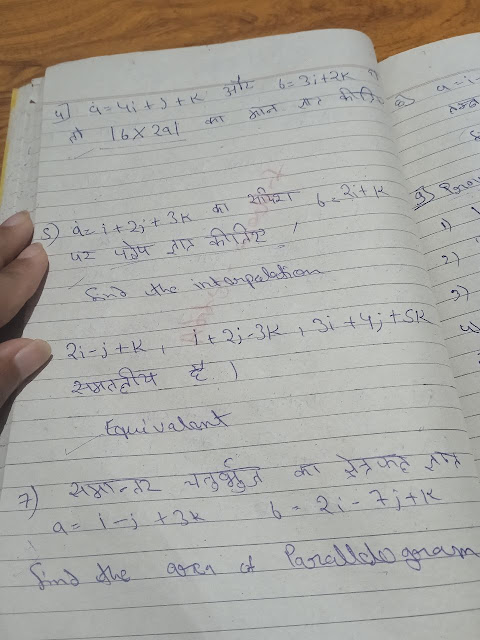 4] a = 4i + j + k और b = 3i + 2k
तो |b × 2a| का मान ज्ञात कीजिए
5) a = i + 2j + 3k का सदिश b = 2i + k
पर प्रक्षेप ज्ञात कीजिए
find the
2i - j + k, i + 2j - 3k, 3i + 4j + 5k
समतलीय है।
Equivalent
7) समान्तर चतुर्भुज का क्षेत्रफल ज्ञात
a = i - j + 3k b = 2i - 7j + k
find the area of
a = i -
9)
1)
2)
3)